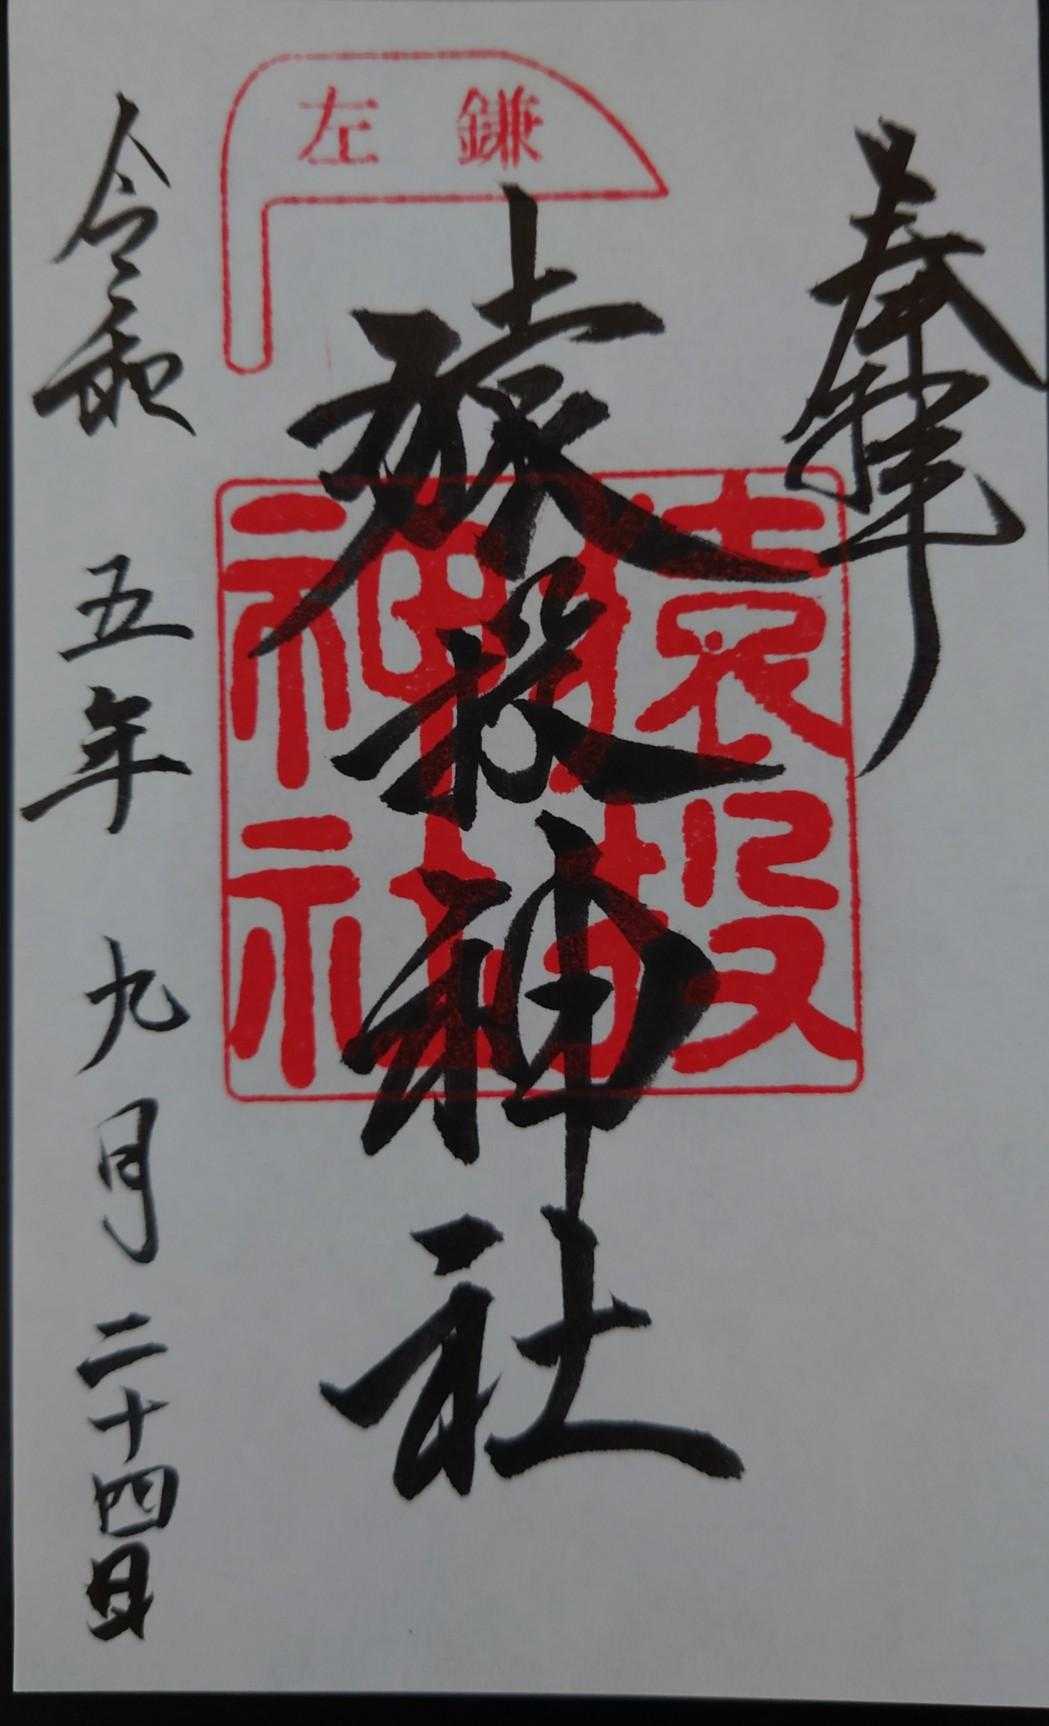 奉拝
左鎌
猿投神社
猿投神社
令和五年九月二十四日